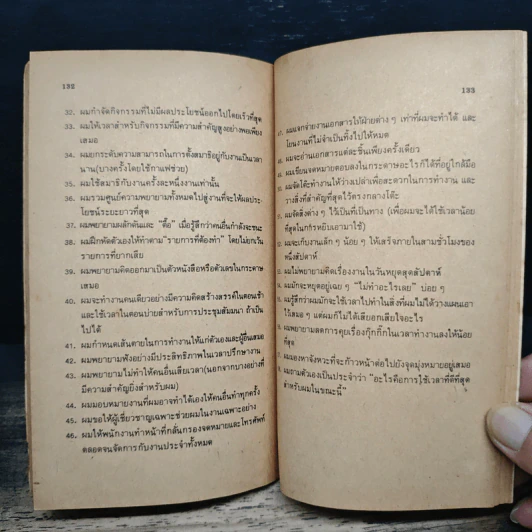 132
32. ผมกำจัดกิจกรรมที่ไม่มีผลประโยชน์ออกไปโดยเร็วที่สุด
33. ผมให้เวลาสำหรับกิจกรรมที่มีความสำคัญสูงอย่างพอเพียง
เสมอ
34. ผมยกระดับความสามารถในการตั้งสมาธิอยู่กับงานเป็นเวลา
นาน (บางครั้งโดยใช้กาแฟช่วย)
35. ผมใช้สมาธิกับงานครั้งละหนึ่งงานเท่านั้น
36. ผมรวมศูนย์ความพยายามทั้งหมดไปสู่งานที่จะให้ผลประ
โยชน์ระยะยาวที่สุด
37. ผมพยายามผลักดันและ “ตื้อ” เมื่อรู้สึกว่าคนอื่นกำลังจะชนะ
38. ผมฝึกหัดตัวเองให้ทำตาม “รายการที่ต้องทำ” โดยไม่ยกเว้น
รายการที่ยากเสีย
39. ผมพยายามคิดออกมาเป็นตัวหนังสือหรือตัวเลขในกระดาษ
เสมอ
40. ผมจะทำงานคนเดียวอย่างมีความคิดสร้างสรรค์ในตอนเช้า
และใช้เวลาในตอนบ่ายสำหรับการประชุมสัมมนา ถ้าเป็น
ไปได้
41. ผมกำหนดเส้นตายในการทำงานให้แก่ตัวเองและผู้อื่นเสมอ
42. ผมพยายามฟังอย่างมีประสิทธิภาพในเวลาปรึกษางาน
43. ผมพยายามไม่ทำให้คนอื่นเสียเวลา (นอกจากบางอย่างที่
มีความสำคัญยิ่งสำหรับผม)
44. ผมมอบหมายงานที่ผมอาจทำได้เองให้คนอื่นทำทุกครั้ง
45. ผมขอให้ผู้เชี่ยวชาญเฉพาะช่วยผมในงานเฉพาะอย่าง
46. ผมให้พนักงานทำหน้าที่กลั่นกรองจดหมายและโทรศัพท์
ตลอดจนจัดการกับงานประจำทั้งหมด
133
ผมแจกจ่ายงานเอกสารให้ฝ่ายต่าง ๆ เท่าที่ผมจะทำได้ และ
โยนงานที่ไม่จำเป็นทิ้งไปให้หมด
ผมจะอ่านเอกสารแต่ละชิ้นเพียงครั้งเดียว
ผมเขียนจดหมายตอบลงในกระดาษอะไรก็ได้ที่อยู่ใกล้มือ
ผมจัดโต๊ะทำงานให้ว่างเปล่าเพื่อสะดวกในการทำงาน และ
วางสิ่งที่สำคัญที่สุดไว้ตรงกลางโต๊ะ
ผมจัดสิ่งต่าง ๆ ไว้เป็นที่เป็นทาง (เพื่อผมจะได้ใช้เวลาน้อย
ที่สุดในการหยิบเอามาใช้)
ผมจะเก็บงานเล็ก ๆ น้อย ๆ ให้เสร็จภายในสามชั่วโมงของ
หนึ่งสัปดาห์
ผมไม่พยายามคิดเรื่องงานในวันหยุดสุดสัปดาห์
ผมมักจะหยุดอยู่เฉย ๆ “ไม่ทำอะไรเลย” บ่อย ๆ
ผมรู้สึกว่าผมมักจะใช้เวลาไปทำในสิ่งที่ผมไม่ได้วางแผนเอา
ไว้เสมอ ๆ แต่ผมก็ไม่ได้เสียอกเสียใจอะไร
ผมพยายามลดการคุยเรื่องกุ๊กกิ๊กในเวลาทำงานลงให้น้อย
ที่สุด
ผมมองหาจังหวะที่จะก้าวหน้าต่อไปยังจุดมุ่งหมายอยู่เสมอ
ผมถามตัวเองเป็นประจำว่า “อะไรคือการใช้เวลาที่ดีที่สุด
สำหรับผมในขณะนี้”